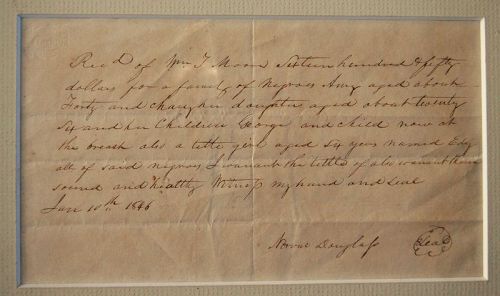 Recd of Wm T Moon Sixteen hundred & fifty
dollars for a family of Negroes Amy aged about
Forty and her daughter aged about twenty
six and her Children George and child now at
the breast also a little girl aged six years named Edy
all of said negroes I warrant the tittle of also warrant them
sound and healthy Witness my hand and Seal
Jan 10th 1846
Douglass Seal